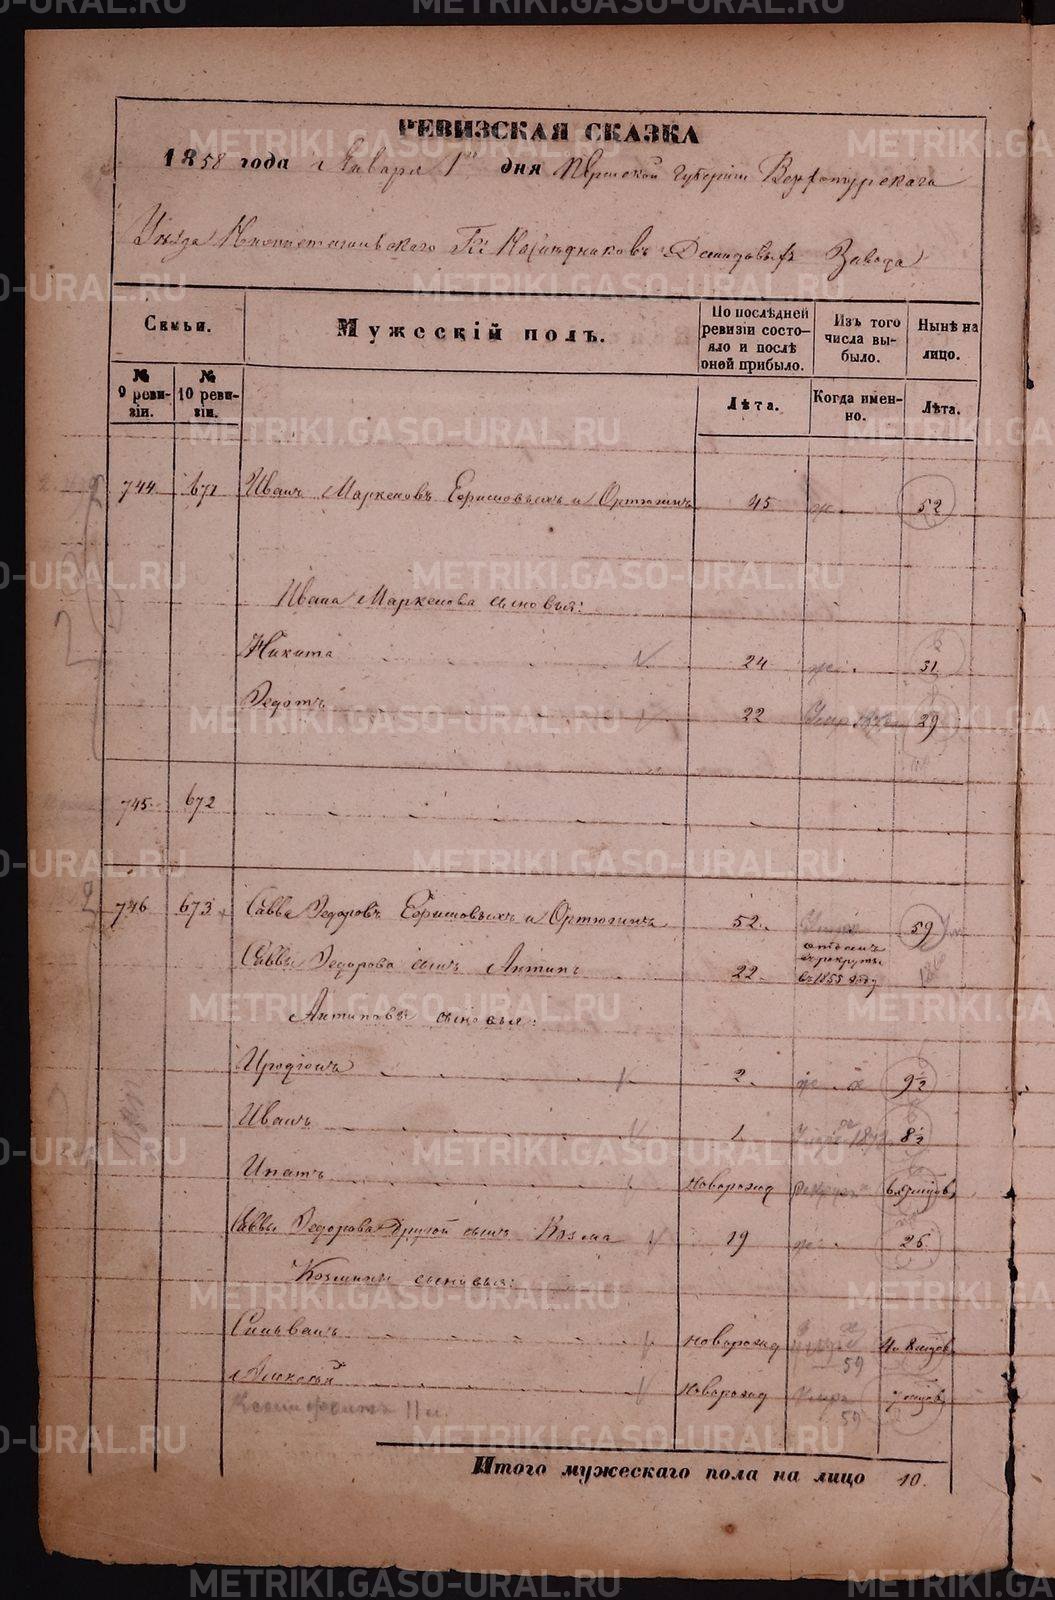 РЕВИЗСКАЯ СКАЗКА
1858 года Января 1го дня Пермской Губернiи Верхотурскаго
Уѣзда Нижнетагильскаго Гг. Наслѣдниковъ Демидовыхъ Завода
Семьи.
Мужескiй полъ.
По послѣдней ревизiи состояло и послѣ оной прибыло.
Изъ того числа выбыло.
Нынѣ на лицо.
№ 9 ревизiи.
№ 10 ревизiи.
Лѣта.
Когда именно.
Лѣта.
744 671 Иванъ Маркеловъ Ефимовыхъ и Ортюгинъ 45 52
Ивана Маркелова сыновья:
Никита 24 31
Федотъ 22 29
745 672
746 673 Савва Федоровъ Ефимовыхъ и Ортюгинъ 52 59
Саввы Федорова сынъ Антипъ 22 отданъ въ рекруты въ 1855 году
Антиповы сыновья:
Иродiонъ 2 9½
Иванъ 1 8½
Ипатъ новорожд
Саввы Федорова другой сынъ Козма 19 26
Козмины сыновья:
Сильванъ новорожд 59
Алексѣй новорожд 7 месяцов 59
Итого мужескаго пола на лицо 10.
METRIKI.GASO-URAL.RU